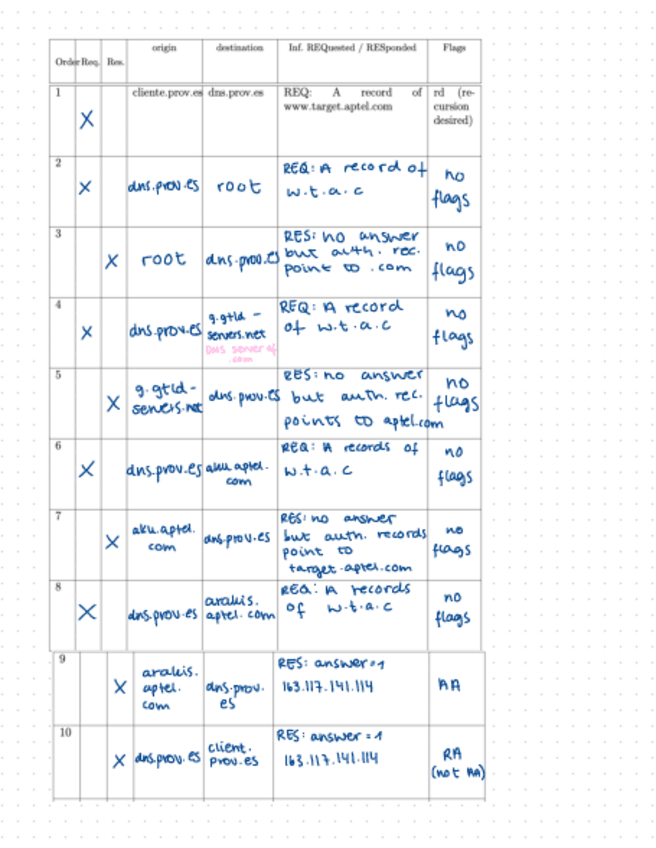 origin destination Inf. REQuested / RESponded Flags
Order Req. Res.
1 cliente.prov.es dns.prov.es REQ: A record of rd (re-
www.target.aptel.com cursion
desired)
X
2
X dns.prov.es root REQ: A record of no
w.t.a.c flags
3
X root dns.prov.es RES: no answer no
but auth. rec. flags
point to .com
4
X dns.prov.es g.gtld- REQ: A record no
servers.net of w.t.a.c flags
DNS server of
.com
5
X g.gtld- dns.prov.es RES: no answer no
servers.net but auth. rec. flags
points to aptel.com
6
X dns.prov.es aku.aptel. REQ: A records of no
com w.t.a.c flags
7
X aku.aptel. dns.prov.es RES: no answer no
com but auth. records flags
point to
target.aptel.com
8
X dns.prov.es arakis. REQ: A records no
aptel.com of w.t.a.c flags
9
X arakis. dns.prov. RES: answer=1 AA
aptel. es 163.117.141.114
com
10
X dns.prov.es client. RES: answer=1 RA
prov.es 163.117.141.114 (not AA)